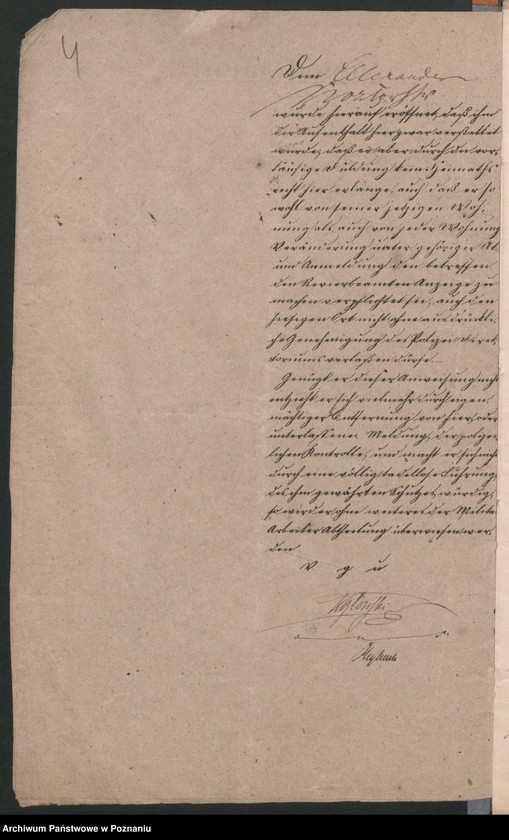 4
Dem Alexander
wurde hierauf eröffnet, daß ihm
der Aufenthalt hier zwar verstattet
würde, daß er aber durch die vor-
läufige Duldung kein Heimaths-
recht hier erlange, auch daß er so
wohl von seiner jetzigen Woh-
nung als auch von jeder Wohnung
Veränderung unter gehöriger Ab
und Anmeldung den betreffen
den Revierbeamten Anzeige zu
machen verpflichtet sei, auch den
hiesigen Ort nicht ohne ausdrückli
che Genehmigung des Polizei Direk
toriums verlaßen dürfe.
Genügt er dieser Anweisung nicht
entzieht er sich vielmehr durch eigen
mächtige Entfernung von hier, oder
unterlassene Meldung, der polizei
lichen Kontrolle, und macht er sich nicht
durch eine völlig tadellose Führung,
des ihm gewährten Schutzes, würdig,
so wird er, ohne weiteres der Militair
Arbeiter Abtheilung überwiesen wer-
den
v g u
Archiwum Państwowe w Poznaniu